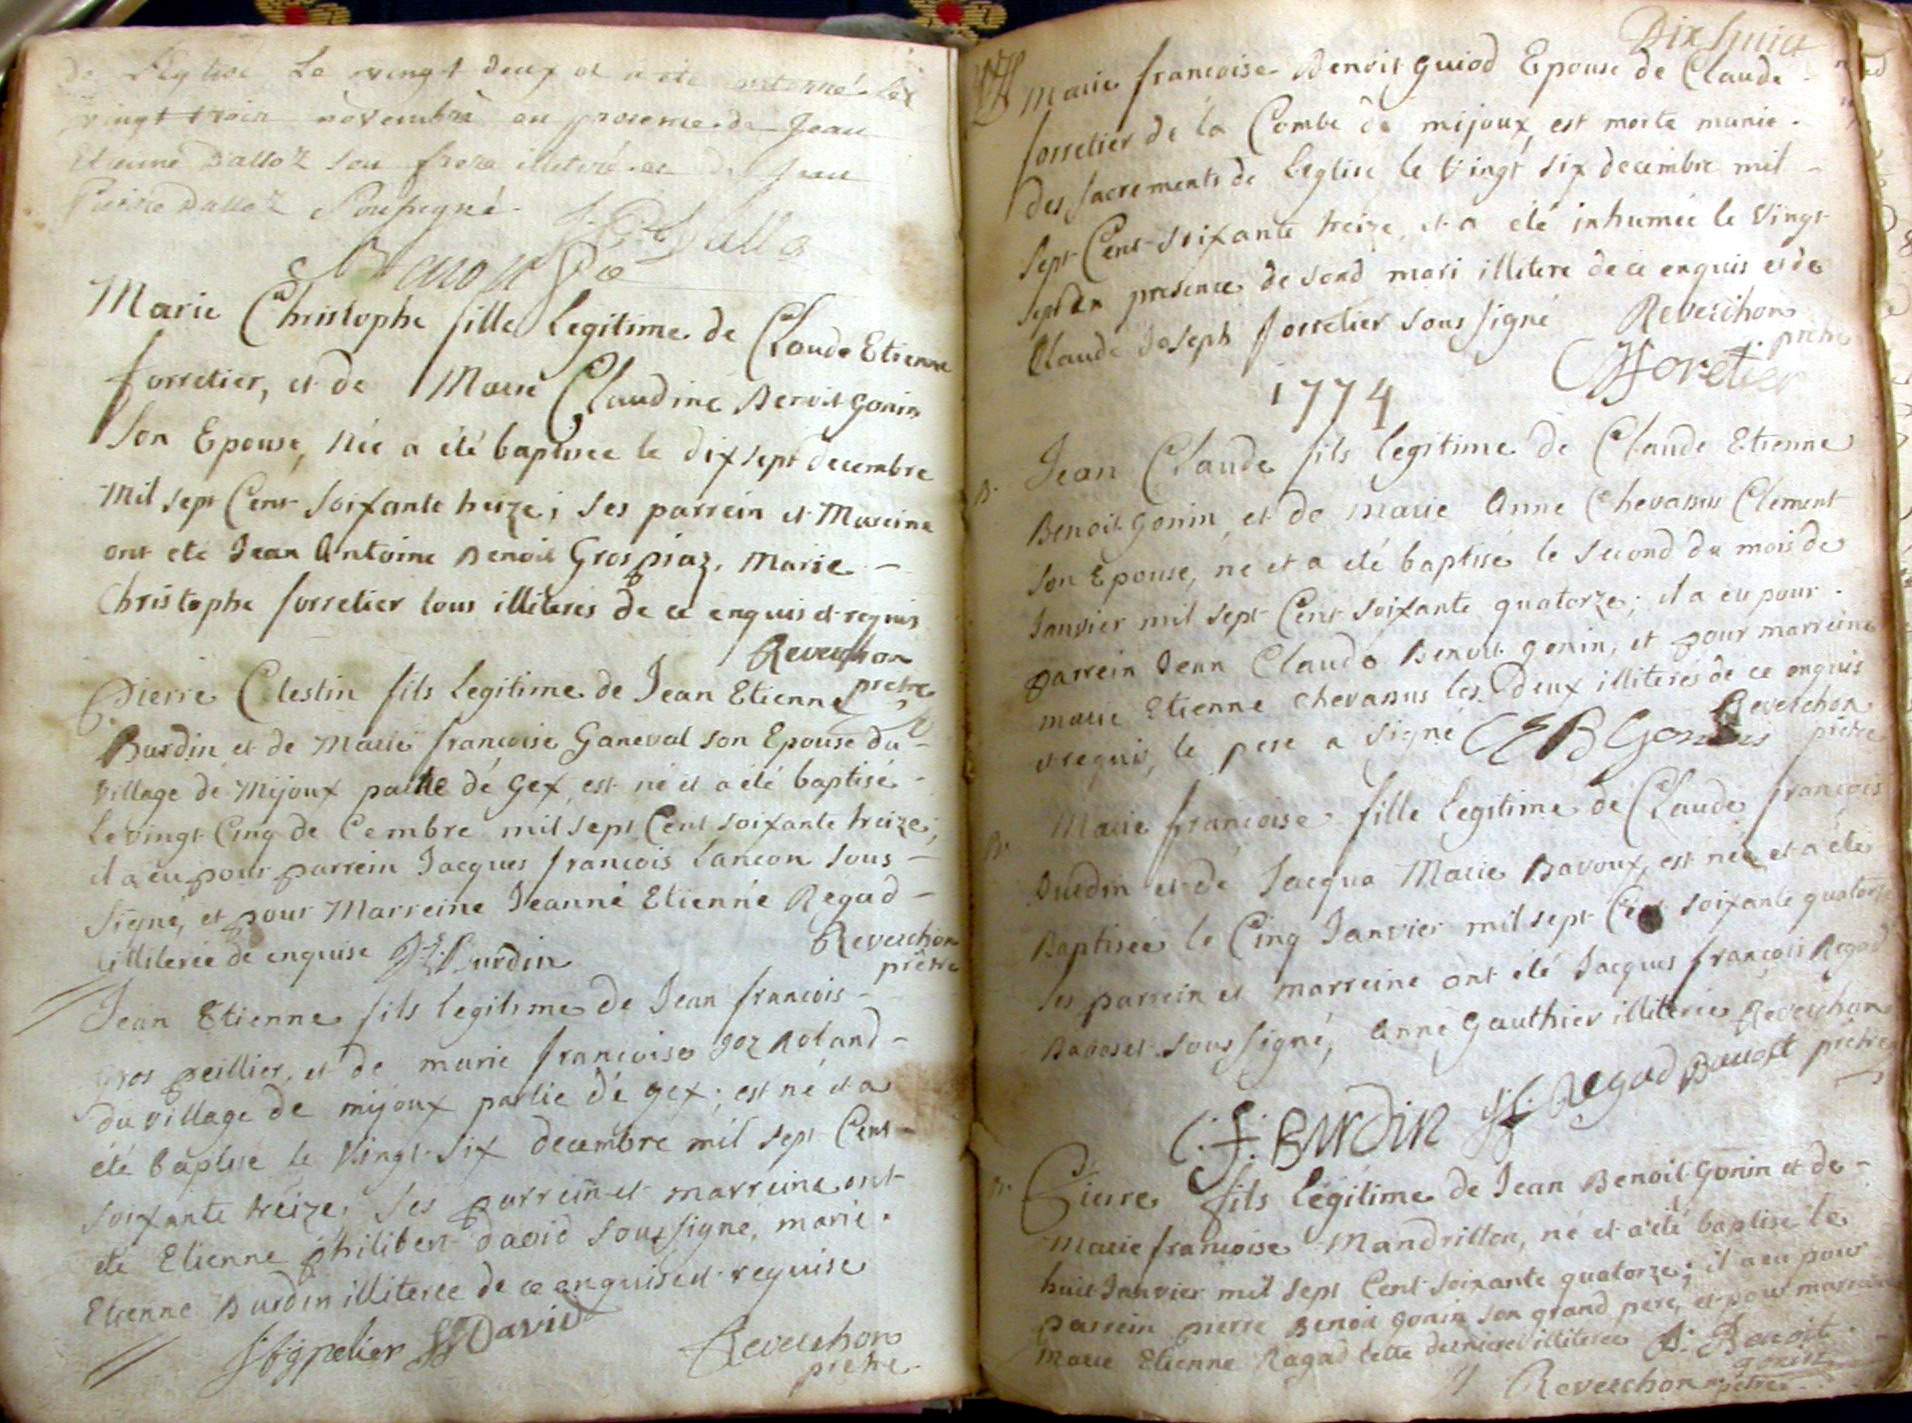 de l'Eglise le vingt deux et a été enterré le
vingt trois novembre en presence de Jean
Etienne Dalloz son frere illiteré et de Jean
Pierre Dalloz Soussigné
Marie Christophe fille legitime de Claude Etienne
forretier, et de Marie Claudine Benoit Gonin
Son Epouse, Née a été baptisée le dix sept decembre
Mil sept Cent soixante treize; ses parrein et Mareine
ont eté Jean Antoine Benoit Grospiaz, Marie
Christophe forretier tous illiterés de ce enquis et requis
Reverchon
prêtre
Pierre Celestin fils legitime de Jean Etienne
Burdin et de Marie françoise Ganeval son Epouse du
village de Mijoux partie de Gex, est né et a été baptisé
le vingt Cinq de Cembre mil sept Cent soixante treize;
il a eu pour parrein Jacques françois Lançon sous
signé, et pour Marreine Jeanne Etienne Regad
illiterée de enquise J. E. Burdin
Reverchon
prêtre
Jean Etienne fils legitime de Jean françois
gros peillier, et de marie françoise Joz Roland
du village de mijoux partie de gex; est né et a
été baptisé le Vingt-Six decembre mil sept Cent
soixante treize, Ses parrein et marreine ont
été Etienne philibert david soussigné, marie
Etienne Burdin illiterée de ce enquise et requise
David
Reverchon
prêtre
Dix huict
Marie françoise Benoit guiod Epouse de Claude
forretier de la Combe de mijoux, est morte munie
des Sacrements de l'eglise le Vingt six decembre mil
Sept Cent Soixante treize, et a été inhumée le Vingt
sept en presence de sond mari illitere de ce enquis et de
Claude Joseph forretier sous signé
Reverchon
prêtre
CJ foretier
1774
B.
Jean Claude fils legitime de Claude Etienne
Benoit Gonin, et de marie Anne Chevassus Clement
Son Epouse, né et a été baptisé le Second du mois de
Janvier mil sept Cent soixante quatorze; il a eu pour
parrein Jean Claude Benoit gonin, et pour marreine
marie Etienne Chevassus les deux illiterés de ce enquis
et requis, le pere a signé CEB Gonin
Reverchon
prêtre
B.
Marie françoise fille legitime de Claude françois
Burdin et de Jacqua Marie Bavoux, est née et a été
Baptisée le Cinq Janvier mil sept Cent soixante quatorze
Ses parrein et marreine ont été Jacques françois Regad
sous signé, Anne Gauthier illiterée
Reverchon
prêtre
C. f. BURDIN J f. Regad
B.
Pierre fils legitime de Jean Benoit Gonin et de
Marie françoise Mandrillon, né et a été baptisé le
huit Janvier mil sept Cent soixante quatorze; il a eu pour
parrein pierre Benoit gonin son grand pere, et pour marreine
marie Etienne Ragad cette derniere illiterée P. Benoit
gonin
Reverchon prêtre